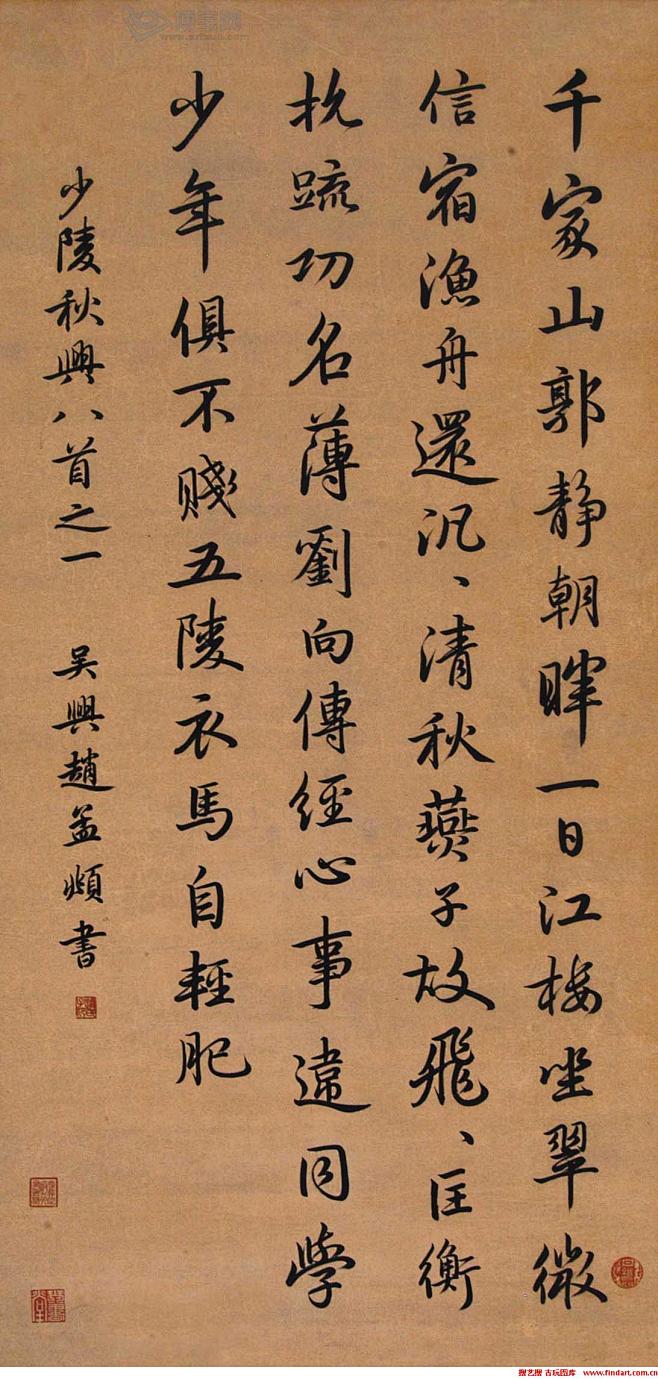 千家山郭静朝暉一日江樓坐翠微
信宿漁舟還汎、清秋燕子故飛、匡衡
抗疏功名薄劉向傳經心事違同學
少年俱不賤五陵衣馬自輕肥
少陵秋興八首之一 吳興趙孟頫書
博宝网
www.artxun.com
搜艺搜 古玩图库 www.findart.com.cn